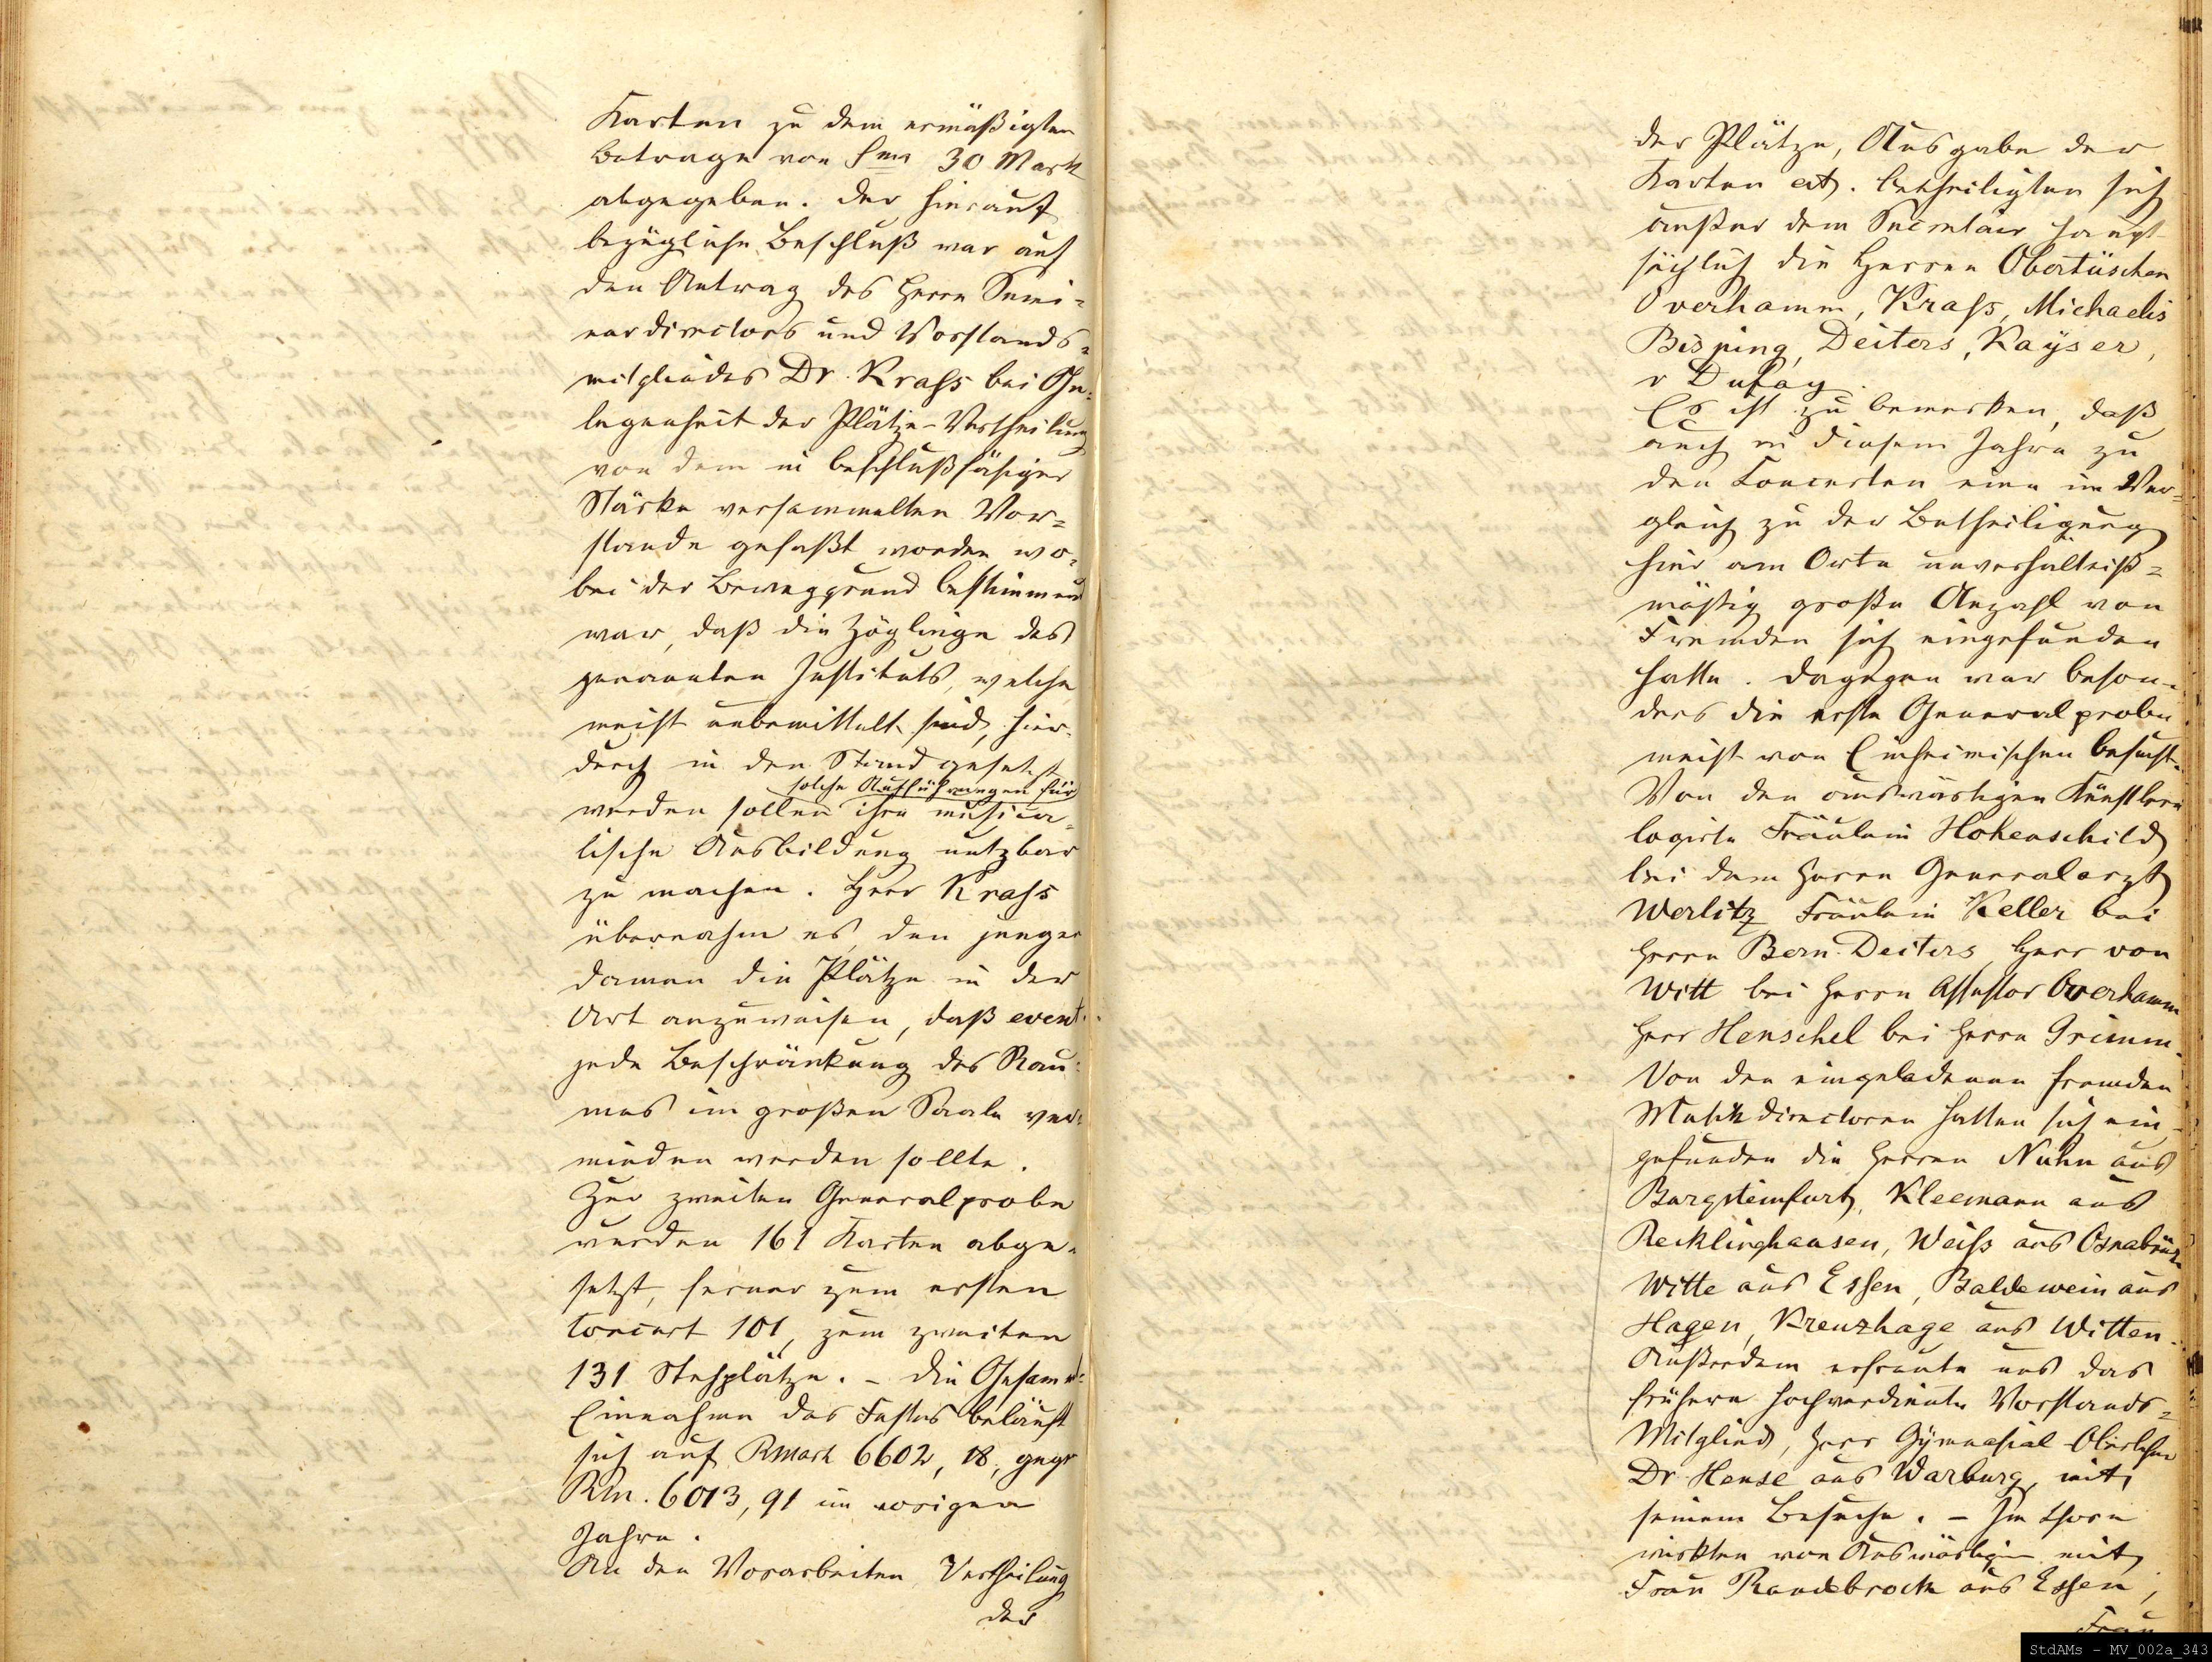 Karten zu dem ermäßigten
Betrage von 30 Mark
abgegeben. Der hierauf
bezügliche Beschluß war auf
den Antrag des Herrn Semi-
nardirectors und Vorstands-
mitgliedes Dr. Krass bei Ge-
legenheit der Plätze-Vertheilung
von dem in beschlußfähiger
Stärke versammelten Vor-
stande gefaßt worden wo-
bei der Beweggrund bestimmend
war, daß die Zöglinge des
genannten Instituts, welche
meist unbemittelt sind, hier-
durch in den Stand gesetzt
solche Aufführungen für
werden sollen ihre musica-
lische Ausbildung nutzbar
zu machen. Herr Krass
übernahm es, den jungen
Damen die Plätze in der
Art anzuweisen, daß event.
jede Beschränkung des Rau-
mes im großen Saale ver-
mieden werden sollte.
Zur zweiten Generalprobe
wurden 161 Karten abge-
setzt, ferner zum ersten
Concert 101, zum zweiten
131 Stehplätze. - Die Gesammt-
Einnahme des Festes beläuft
sich auf Rmark 6602, 18, gegn
Rm. 6013, 91 im vorigen
Jahre.
An den Vorarbeiten, Vertheilung
der
der Plätze, Ausgabe der
Karten etc. betheiligten sich
außer dem Secretair haupt-
sächlich die Herren Obertüschen
Overhamm, Krass, Michaelis
Bisping, Deiters, Kayser,
v Dufay.
Es ist zu bemerken, daß
auch in diesem Jahre zu
den Concerten eine im Ver-
gleich zu der Betheiligung
hier am Orte unverhältniß-
mäßig große Anzahl von
Fremden sich eingefunden
hatte. Dagegen war beson-
ders die erste Generalprobe
meist von Einheimischen besucht.
Von den auswärtigen Künstlern
logirte Fräulein Hohenschild
bei dem Herrn Generalarzt
Werlitz Fräulein Keller bei
Herrn Bern. Deiters, Herr von
Witt bei Herrn Assessor Overhamm
Herr Henschel bei Herrn Grimm.
Von den eingeladenen fremden
Musikdirectoren hatten sich ein-
gefunden die Herren Nuhn aus
Burgsteinfurt, Kleemann aus
Recklinghausen, Weiss aus Osnabrück
Witte aus Essen, Baldewein aus
Hagen, Kreuzhage aus Witten.
Außerdem erfreute uns das
frühere hochverdiente Vorstands-
Mitglied, Herr Gymnasial-Oberlehrer
Dr Hense aus Warburg, mit
seinem Besuche. - Im Chore
wirkten von Auswärtigen mit,
Frau Randebrock aus Essen,
Frau
StdAMs - MV_002a_343